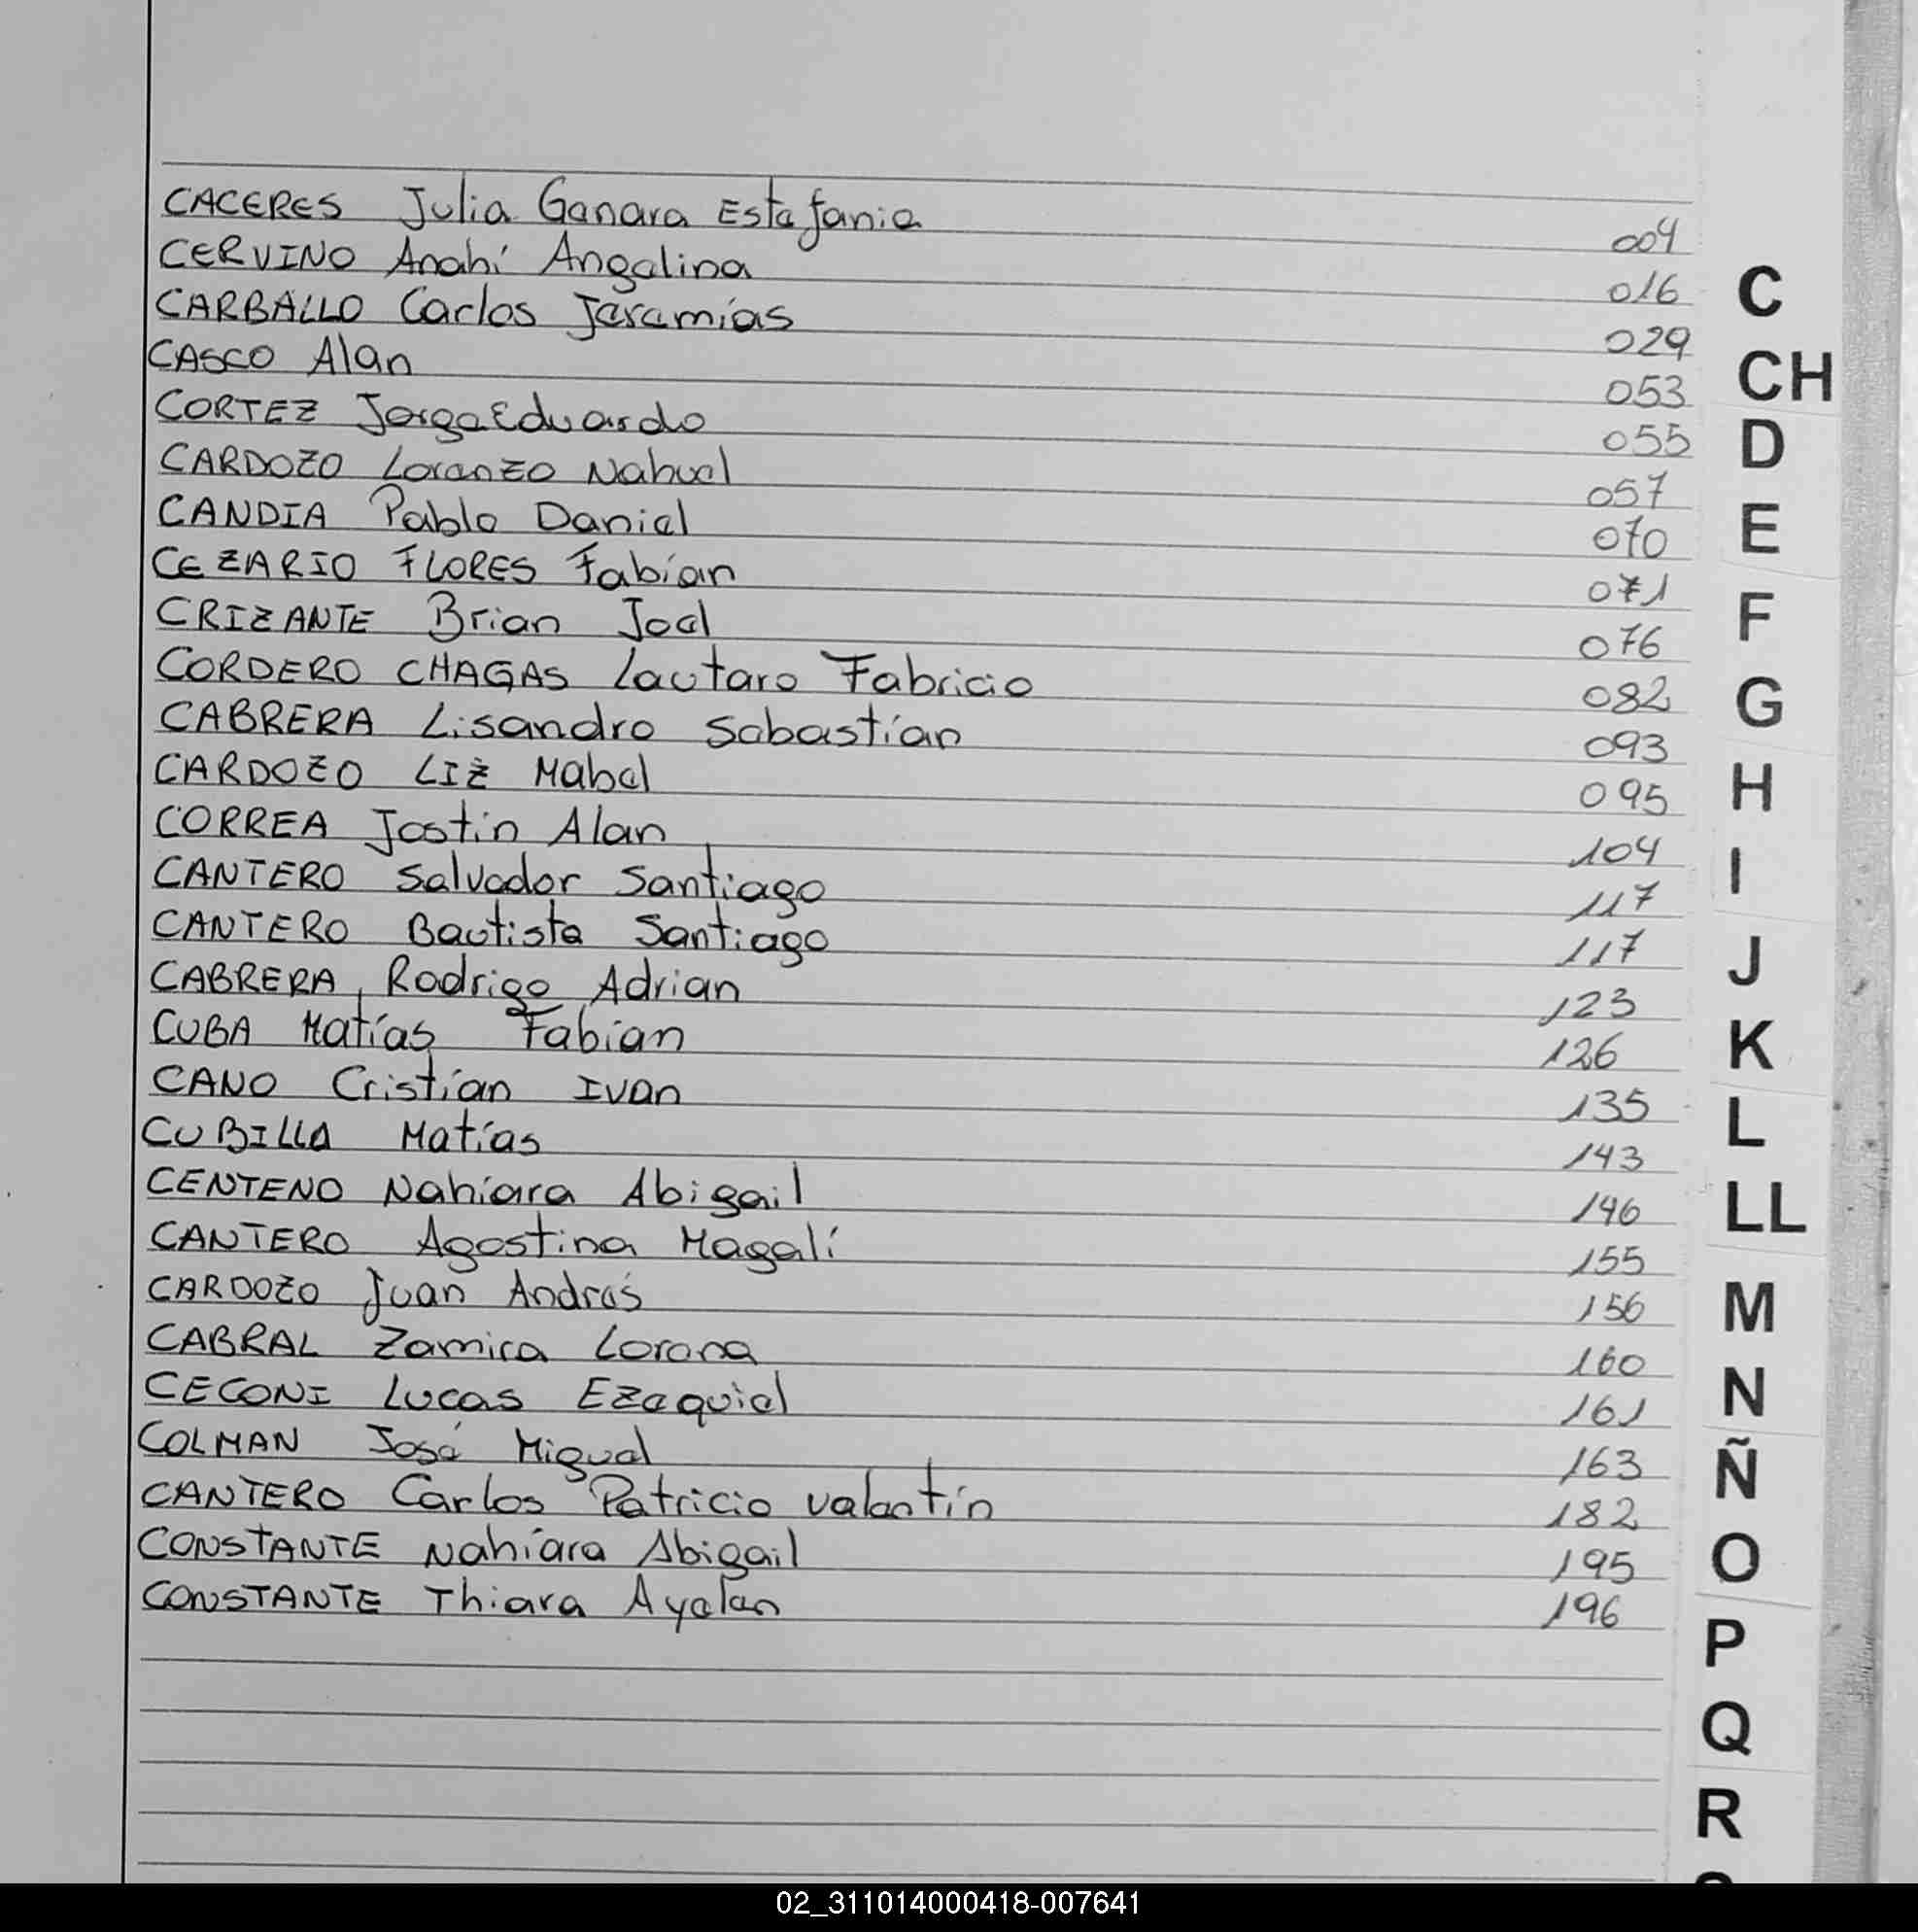 CACERES Julia Genara Estefania 004
CERVINO Anahí Angelina 016
CARBALLO Carlos Jeremías 029
CASCO Alan 053
CORTEZ Jorge Eduardo 055
CARDOZO Lorenzo Nahuel 057
CANDIA Pablo Daniel 070
CEZARIO FLORES Fabián 071
CRIZANTE Brian Joel 076
CORDERO CHAGAS Lautaro Fabricio 082
CABRERA Lisandro Sebastían 093
CARDOZO LIZ Mabel 095
CORREA Jostin Alan 104
CANTERO Salvador Santiago 117
CANTERO Bautista Santiago 117
CABRERA Rodrigo Adrian 123
CUBA Matías Fabian 126
CANO Cristían Ivan 135
CUBILLA Matías 143
CENTENO Nahiara Abigail 146
CANTERO Agostina Magalí 155
CARDOZO Juan Andrés 156
CABRAL Zamira Lorena 160
CECONI Lucas Ezequiel 161
COLMAN José Miguel 163
CANTERO Carlos Patricio Valentín 182
CONSTANTE Nahíara Abigail 195
CONSTANTE Thiara Ayelen 196
C
CH
D
E
F
G
H
I
J
K
L
LL
M
N
Ñ
O
P
Q
R
02_311014000418-007641